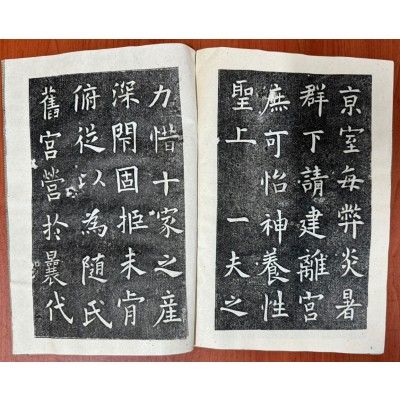 亰室每弊炎暑
群下請建離宫
庶可怡神養性
聖上 一夫之
力惜十家之産
深閇固拒未肯
俯從以為随氏
舊宫營於曩代